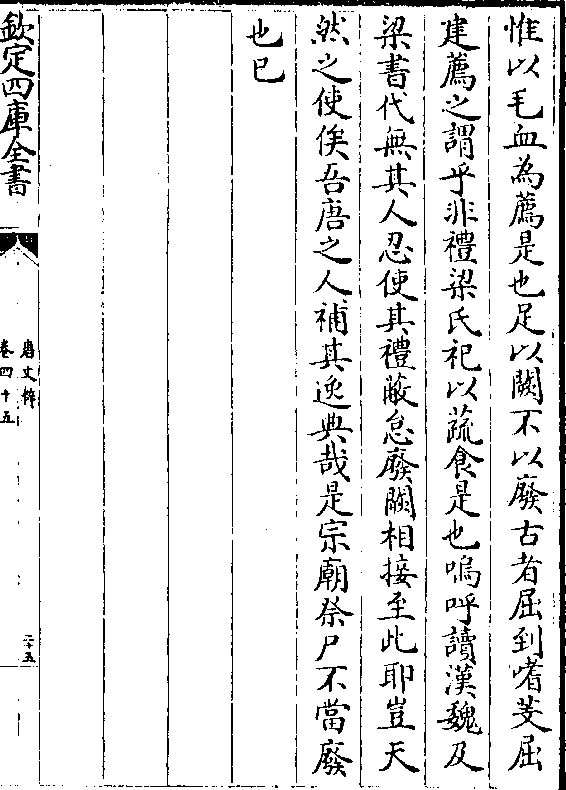 惟以毛血為薦是也足以闕不以廢古者屈到嗜芰屈
建薦之謂乎非禮梁氏祀以蔬食是也嗚呼讀漢魏及
梁書代無其人忍使其禮蔽怠廢闕相接至此耶豈天
然之使俟吾唐之人補其逸典哉是宗廟祭尸不當廢
也已
欽定四庫全書
唐文粹
卷四十五
二十五